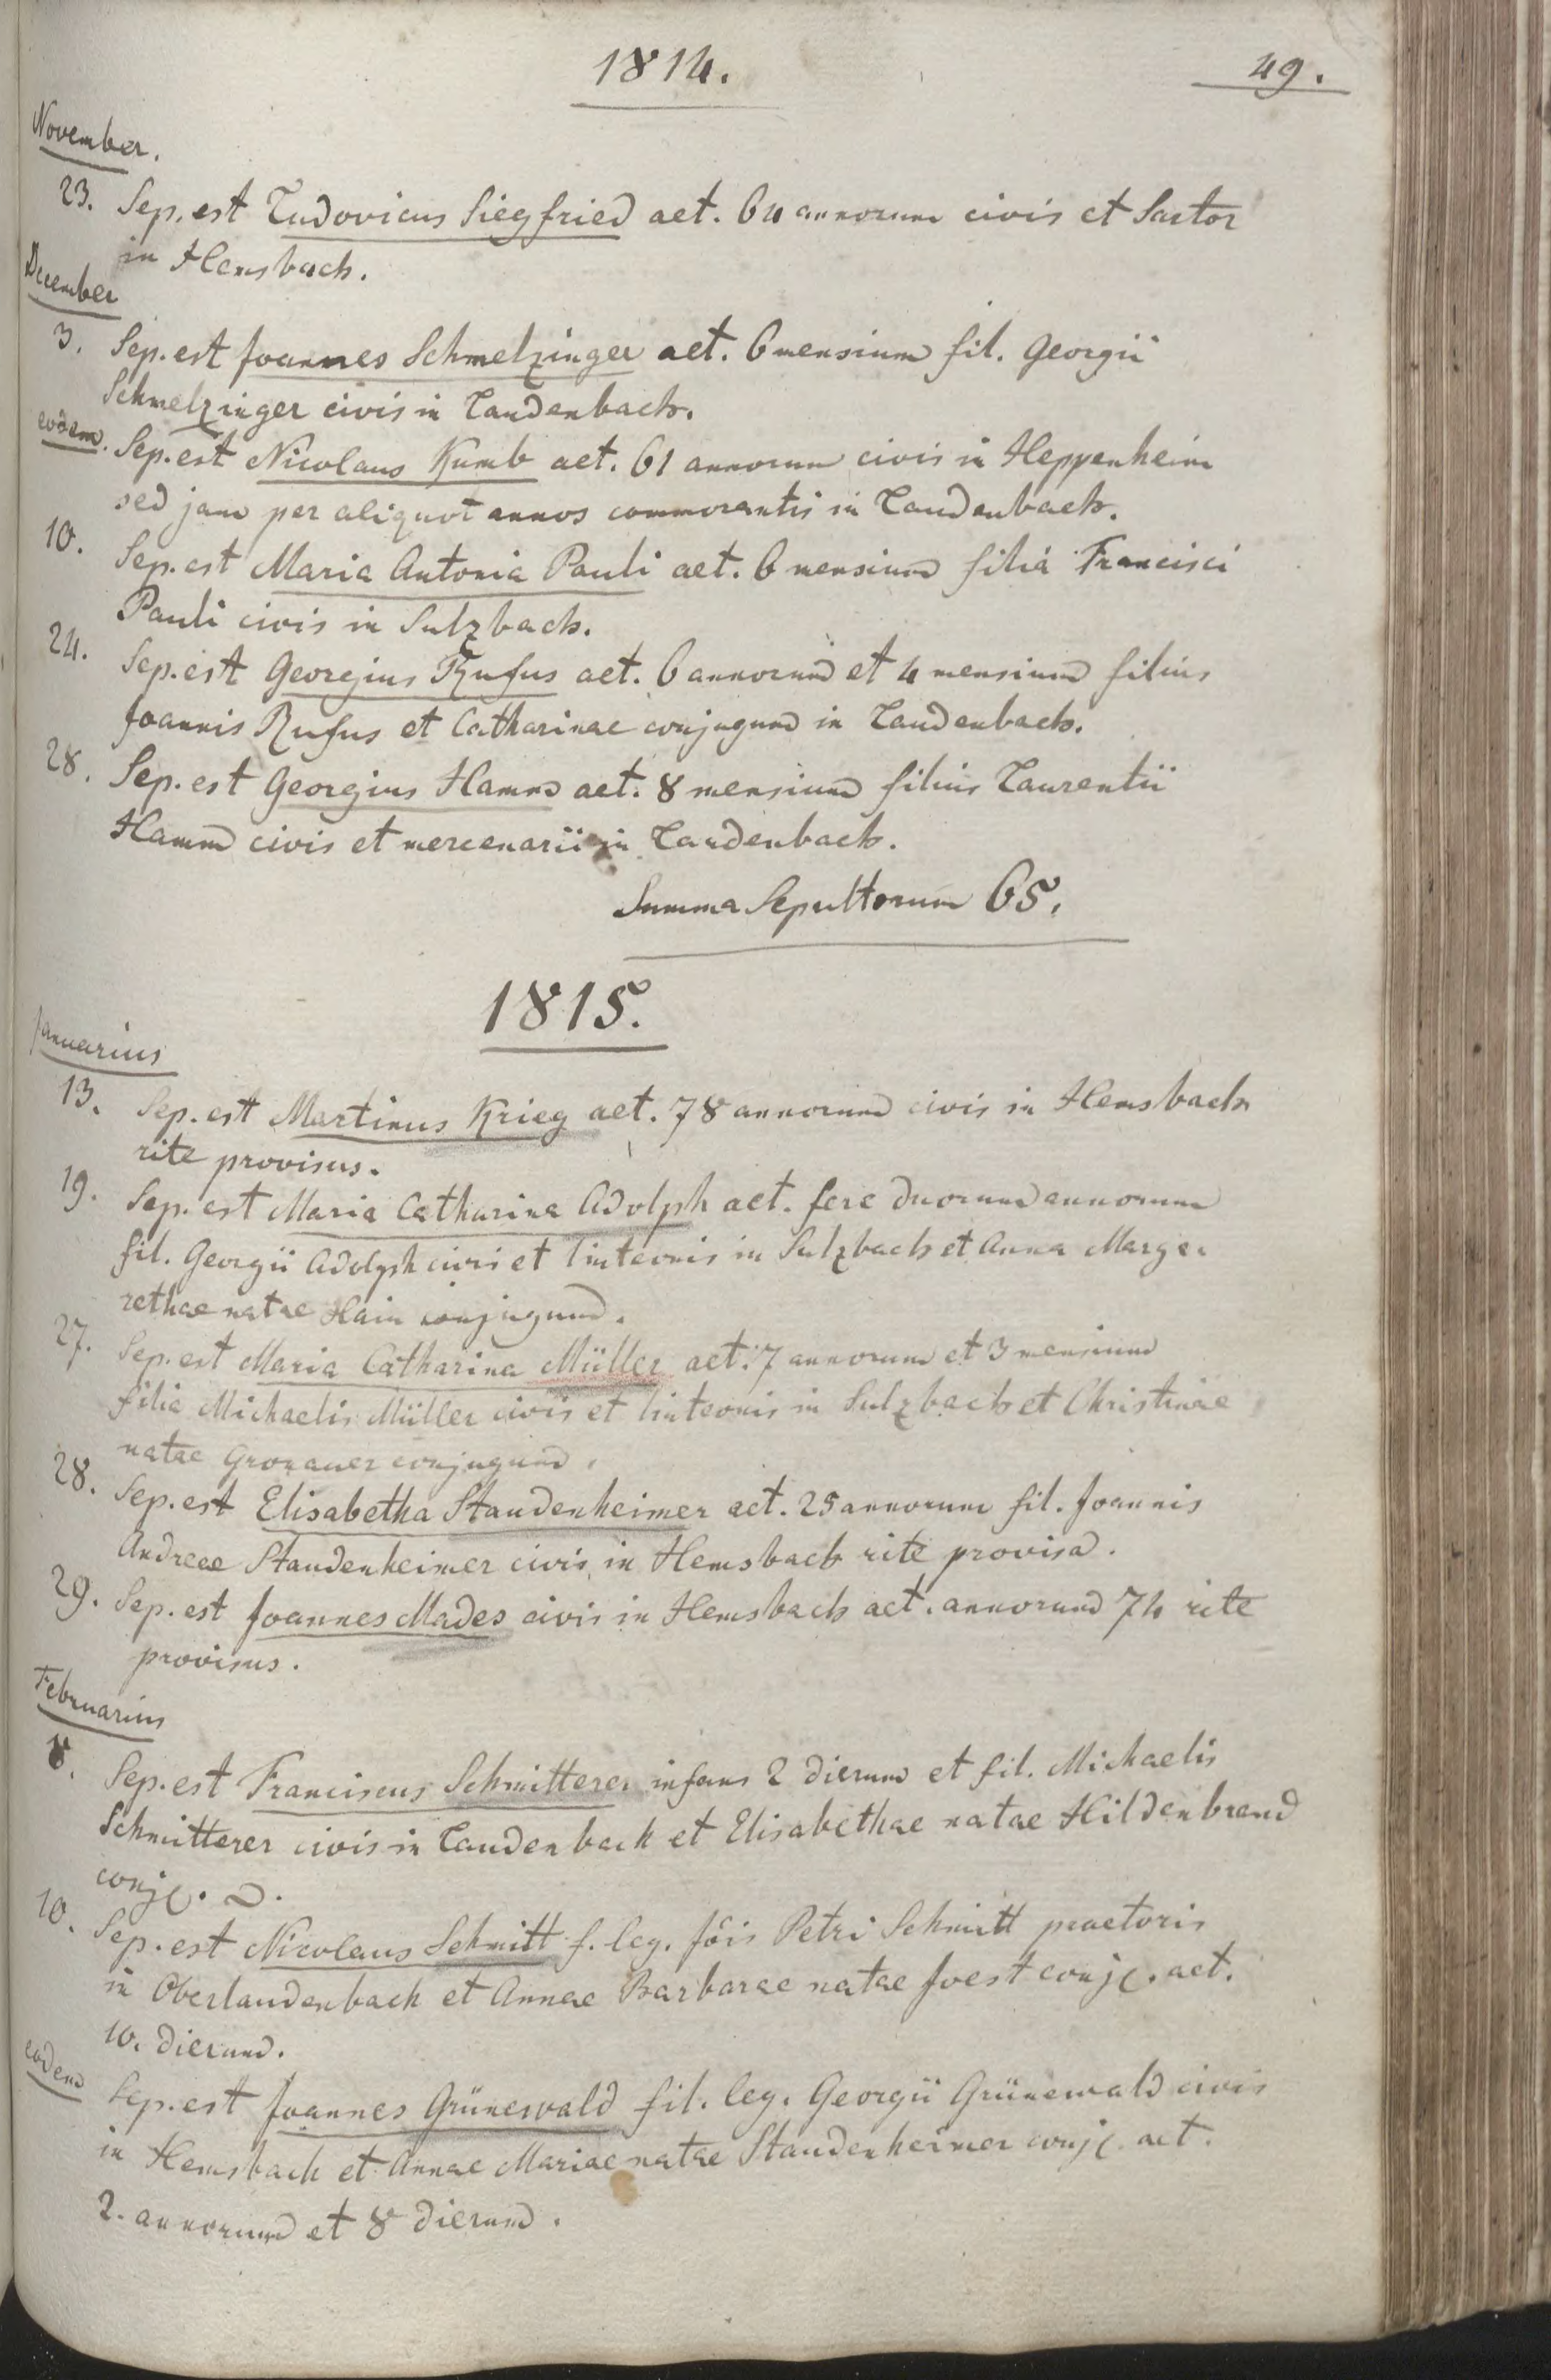 1814.
49.
November.
23. Sep. est Ludovicus Siegfried aet. 64 annorum civis et Sartor
in Hemsbach.
December
3. Sep. est Joannes Schmelzinger aet. 6 mensium fil. Georgii
Schmelzinger civis in Laudenbach.
eodem. Sep. est Nicolaus Kumb aet. 61 annorum civis in Heppenheim
sed jam per aliquot annos commorantis in Laudenbach.
10. Sep. est Maria Antonia Pauli aet. 6 mensium filia Francisci
Pauli civis in Sulzbach.
24. Sep. est Georgius Rufus aet. 6 annorum et 4 mensium filius
Joannis Rufus et Catharinae conjugum in Laudenbach.
28. Sep. est Georgius Hamm aet. 8 mensium filius Laurentii
Hamm civis et mercenarii in Laudenbach.
Summa Sepultorum 65.
1815.
Januarius
13. Sep. est Martinus Krieg aet. 78 annorum civis in Hemsbach
rite provisus.
19. Sep. est Maria Catharina Adolph aet. fere duorum annorum
fil. Georgii Adolph civis et linteonis in Sulzbach et Anna Marga
rethae natae Hain conjugum.
27. Sep. est Maria Catharina Müller aet. 7 annorum et 3 mensium
filia Michaelis Müller civis et linteonis in Sulzbach et Christinae
natae Gronauer conjugum.
28. Sep. est Elisabetha Staudenheimer aet. 25 annorum fil. Joannis
Andreae Staudenheimer civis in Hemsbach rite provisa.
29. Sep. est Joannes Mades civis in Hemsbach aet. annorum 74 rite
provisus.
Februarius
Sep. est Franciscus Schmitterer infans 2 dierum et fil. Michaelis
Schmitterer civis in Laudenbach et Elisabethae natae Hildenbrand
conjg.
10. Sep. est Nicolaus Schmitt f. leg. Jôis Petri Schmitt praetoris
in Oberlaudenbach et Annae Barbarae natae Joest conjg. aet.
10. dierum.
eodem Sep. est Joannes Grünewald fil. leg. Georgii Grünewald civis
in Hemsbach et Annae Mariae natae Staudenheimer conjg. aet.
2. annorum et 8 dierum.